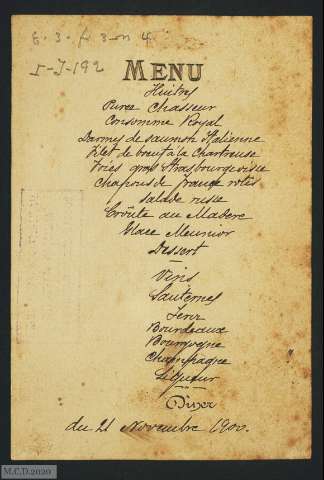 6. 3. f 3-n 4.
5-J-192
MENU
Huitres
Puree Chasseur
Consomme Royal
Darnes de saumon Italienne
Filet de boeuf a la Chartreuse
Foies gras Strasbourgeoisie
Chapons de France rotis
Salade russe
Croûte au Madere
Glace Meunior
Dessert
Vins
Sauternes
Jerez
Bourdeaux
Bourgogne
Champagne
Liqueur
Diner
du 21 Novembre 1900.
M.C.D.2020